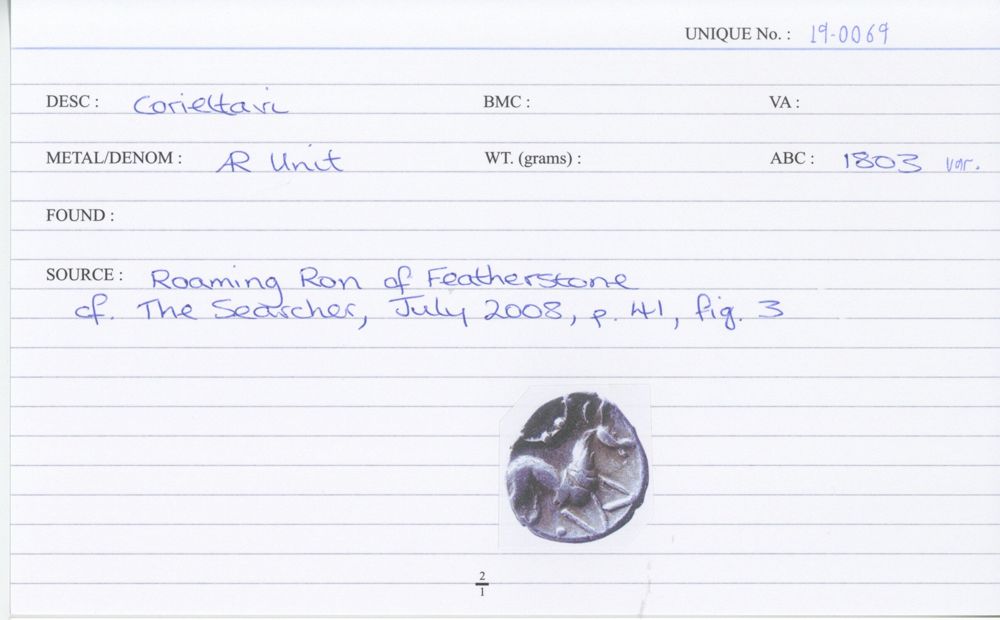 UNIQUE No. : 19-0069
DESC : Corieltavi BMC : VA :
METAL/DENOM : AR Unit WT. (grams) : ABC : 1803 var.
FOUND :
SOURCE : Roaming Ron of Featherstone
cf. The Searcher, July 2008, p. 41, fig. 3
2
1